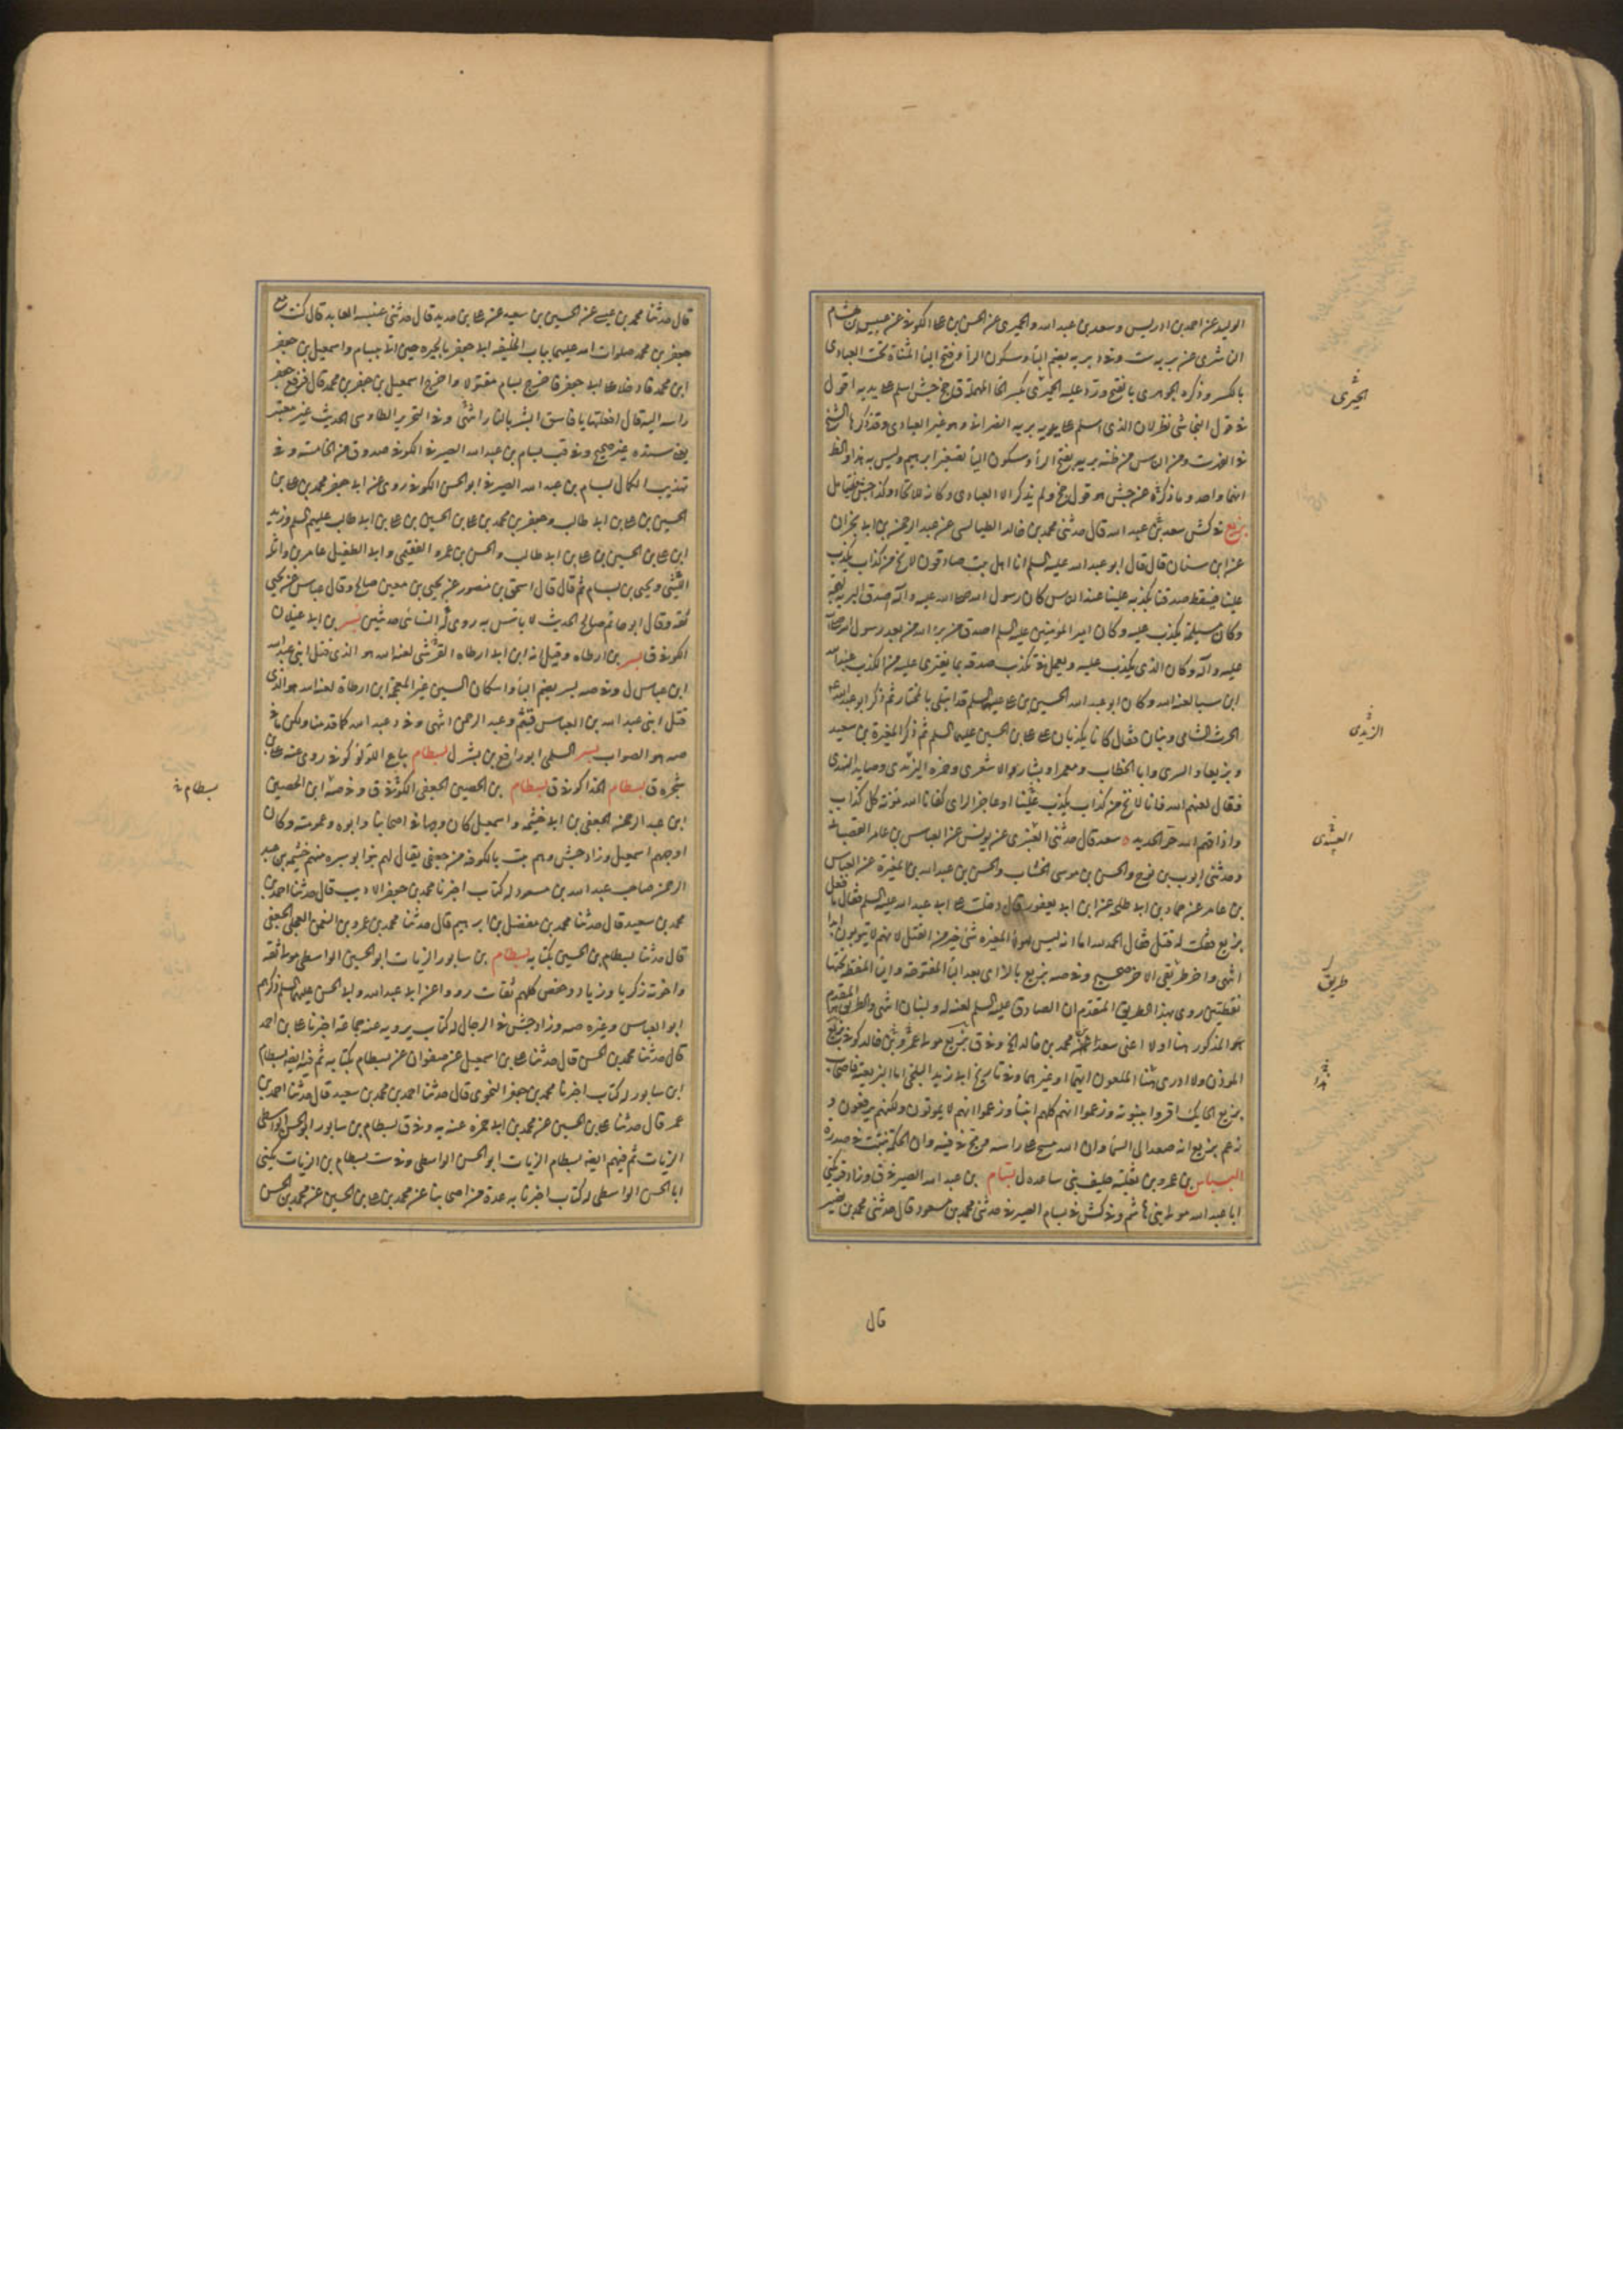 الوليد عن احمد بن ادريس وسعد بن عبد الله والحميرى عن الحسن بن على الكوفى عن عبيس بن هشام
الناشرى عن بريه ست وفى د بريه بضم الباء وسكون الراء وفتح الياء المثناة تحت العبادى
بالكسر وذكره الجوهرى بالفتح ورد عليه الحيرى بكسر الحاء المهملة ق جخ جش اسلم على يديه اقول
فى قول النجاشى نظر لان الذى اسلم على يديه بريه النصرانى وهو غير العبادى وقد ذكرهما الشيخ
فى الفهرست ومن الناس من ظنه بريه بفتح الراء وسكون الياء تصغير ابرهيم وليس به
انهما واحد وما ذكره عن جش هو قول جخ ولم يذكر الا العبادى وكانه للاتحاد وكذا جش فتامل
بزيع فى كش سعد بن عبد الله قال حدثنى محمد بن خالد الطيالسى عن عبد الرحمن بن ابى نجران
عن ابن سنان قال قال ابو عبد الله عليه السلم انا اهل بيت صادقون لا نخ من كذاب يكذب
علينا فيسقط صدقنا بكذبه علينا عند الناس كان رسول الله صلى الله عليه وآله اصدق البريه لهجة
وكان مسيلمة يكذب عليه وكان امير المؤمنين عليه السلم اصدق من برء الله من بعد رسول الله صلى الله
عليه وآله وكان الذى يكذب عليه ويعمل فى تكذيب صدقه بما يفترى عليه من الكذب عبد الله
ابن سبا لعنه الله وكان ابو عبد الله الحسين بن على عليهما السلم قد ابتلى بالمختار ثم ذكر ابو عبد الله ع
الحرث الشامى وبنان فقال كانا يكذبان على على بن الحسين عليهما السلم ثم ذكر المغيرة بن سعيد
وبزيعا والسرى وابا الخطاب ومعمرا وبشارا الاشعرى وحمزه اليزيدى وصايد النهدى
فقال لعنهم الله فانا لا نخ من كذاب يكذب علينا او عاجز الراى كفانا الله مؤنة كل كذاب
واذاقهم الله حر الحديد ٥ سعد قال حدثنى العبيدى عن يونس عن العباس بن عامر القصبانى
وحدثنى ايوب بن نوح والحسن بن موسى الخشاب والحسن بن عبد الله بن المغيرة عن العباس
بن عامر عن حماد بن ابى طلحة عن ابن ابى يعفور قال دخلت على ابى عبد الله عليه السلم فقال ما فعل
بزيع فقلت له قتل فقال الحمد لله اما انه ليس لهولاء المغيره شئ خير من القتل لانهم لا يتوبون ابدا
انتهى واخر طريقى الاخر صحيح وفى صه بزيع بالزاى بعد الباء المفتوحة والياء المنقطة تحتها
نقطتين روى بهذا الطريق المتقدم ان الصادق عليه السلم لعنه له ولبنان انتهى والطريق المقدم
هو المذكور هنا اولا اعنى سعدا عن محمد بن خالد الخ وفى ق بزيع مولى عمرو بن خالد كوفى بزيع
الموذن ولا ادرى هذا الملعون ايهما او غيرهما وفى تاريخ ابى زيد البلخى اما البزيعية فاصحاب
بزيع الحايك اقروا بنبوته وزعموا انهم كلهم انبياء وزعموا انهم لا يموتون ولكنهم يرفعون و
زعم بزيع انه صعد الى السماء وان الله مسح على راسه ومج فى فيه وان الحكمة نبتت فى صدره
البسباس بن عمرو بن ثعلبة حليف بنى ساعده ل بسام بن عبد الله الصيرفى ق وزاد قر يكنى
ابا عبد الله مولى بنى هاشم وفى كش فى بسام الصيرفى حدثنى محمد بن مسعود قال حدثنى محمد بن نصير
الحيرى
اليزيدى
العبيدى
طريق
هذا
قال
قال حدثنا محمد بن عيسى عن الحسين بن سعيد عن على بن حديد قال حدثنى عنبسه العابد قال كنت مع
جعفر بن محمد صلوات الله عليهما بباب الخليفه ابى جعفر بالحيره حين اتى ببسام واسمعيل بن جعفر
ابن محمد فادخلا على ابى جعفر فاخرج بسام مقتولا واخرج اسمعيل بن جعفر بن محمد قال فرفع جعفر
راسه اليه قال افعلتها يا فاسق ابشر بالنار انتهى وفى التحرير الطاوسى الحديث غير معتبر
يعنى سنده غير صحيح وفى قب بسام بن عبد الله الصيرفى الكوفى صدوق من الخامسة وفى
تهذيب الكمال بسام بن عبد الله الصيرفى ابو الحسن الكوفى روى عن ابى جعفر محمد بن على بن
الحسين بن على بن ابى طالب وجعفر بن محمد بن على بن الحسين بن على بن ابى طالب عليهم السلم وزيد
ابن على بن الحسين بن على بن ابى طالب والحسن بن عمرو الفقيمى وابى الطفيل عامر بن واثلة
الليثى ويحيى بن بسام ثم قال قال اسحق بن منصور عن يحيى بن معين صالح وقال عباس عن يحيى
ثقه وقال ابو حاتم صالح الحديث لا باس به روى له النسائى حديثين بسر بن ابى غيلان
الكوفى ق بسر بن ارطاه وقيل انه ابن ابى ارطاه القرشى لعنه الله هو الذى قتل ابنى عبيد الله
ابن عباس ل وفى صه بسر بضم الباء واسكان السين غير المعجمة ابن ارطاة لعنه الله هو الذى
قتل ابنى عبد الله بن العباس قثم وعبد الرحمن انتهى وفى د عبيد الله كما قدمنا ولكن ما فى
صه هو الصواب بسر السلمى ابو رافع بن بشر ل بسطام بياع اللؤلؤ كوفى روى عنه على بن
شجره ق بسطام الحذا كوفى ق بسطام بن الحصين الجعفى الكوفى ق وفى صه ابن الحصين
ابن عبد الرحمن الجعفى بن اخى خيثمه واسمعيل كان وجها فى اصحابنا وابوه وعمومته وكان
اوجههم اسمعيل وزاد جش وهم بيت بالكوفة من جعفى يقال لهم بنو ابو سبره منهم خيثمه بن عبد
الرحمن صاحب عبد الله بن مسعود له كتاب اخبرنا محمد بن جعفر الاديب قال حدثنا احمد بن
محمد بن سعيد قال حدثنا محمد بن مفضل بن ابرهيم قال حدثنا محمد بن عمرو بن النعمن العجلى الجعفى
قال حدثنا بسطام بن الحصين بكتابه بسطام بن سابور الزيات ابو الحسين الواسطى مولى ثقة
واخوته زكريا وزياد وحفص كلهم ثقات رووا عن ابى عبد الله وابى الحسن عليهما السلم ذكرهم
ابو العباس وغيره صه وزاد جش فى الرجال له كتاب يرويه عنه جماعة اخبرنا على بن احمد
قال حدثنا محمد بن الحسن قال حدثنا على بن اسمعيل عن صفوان عن بسطام بكتابه ثم فيه ايضا بسطام
ابن سابور له كتاب اخبرنا محمد بن جعفر النحوى قال حدثنا احمد بن محمد بن سعيد قال حدثنا احمد بن
عمر قال حدثنا على بن الحسين عن محمد بن ابى حمزه عنه به وفى ق بسطام بن سابور ابو الحسن الواسطى
الزيات ثم فيهم ايضا بسطام الزيات ابو الحسن الواسطى وفى ست بسطام بن الزيات يكنى
ابا الحسن الواسطى له كتاب اخبرنا به عدة من اصحابنا عن محمد بن على بن الحسين عن محمد بن الحسن
بسطام ق